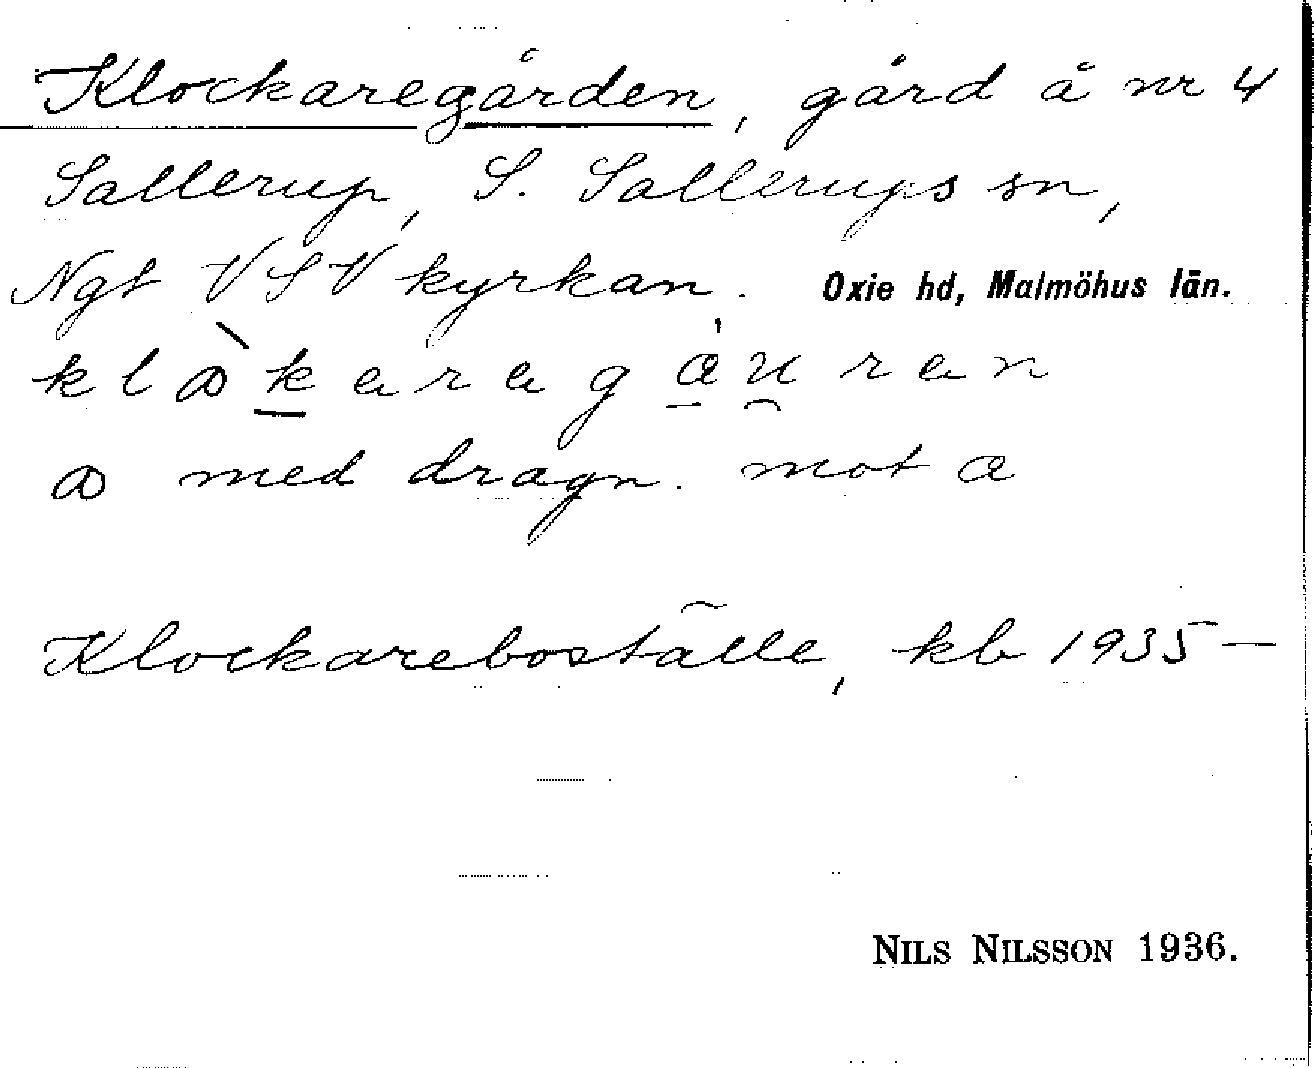 Klockaregården, gård å nr 4
Sallerup, S. Sallerups sn,
Ngt VSV kyrkan. Oxie hd, Malmöhus län.
med dragn. mot
Klockareboställe, kb 1935 —
NILS NILSSON 1936.